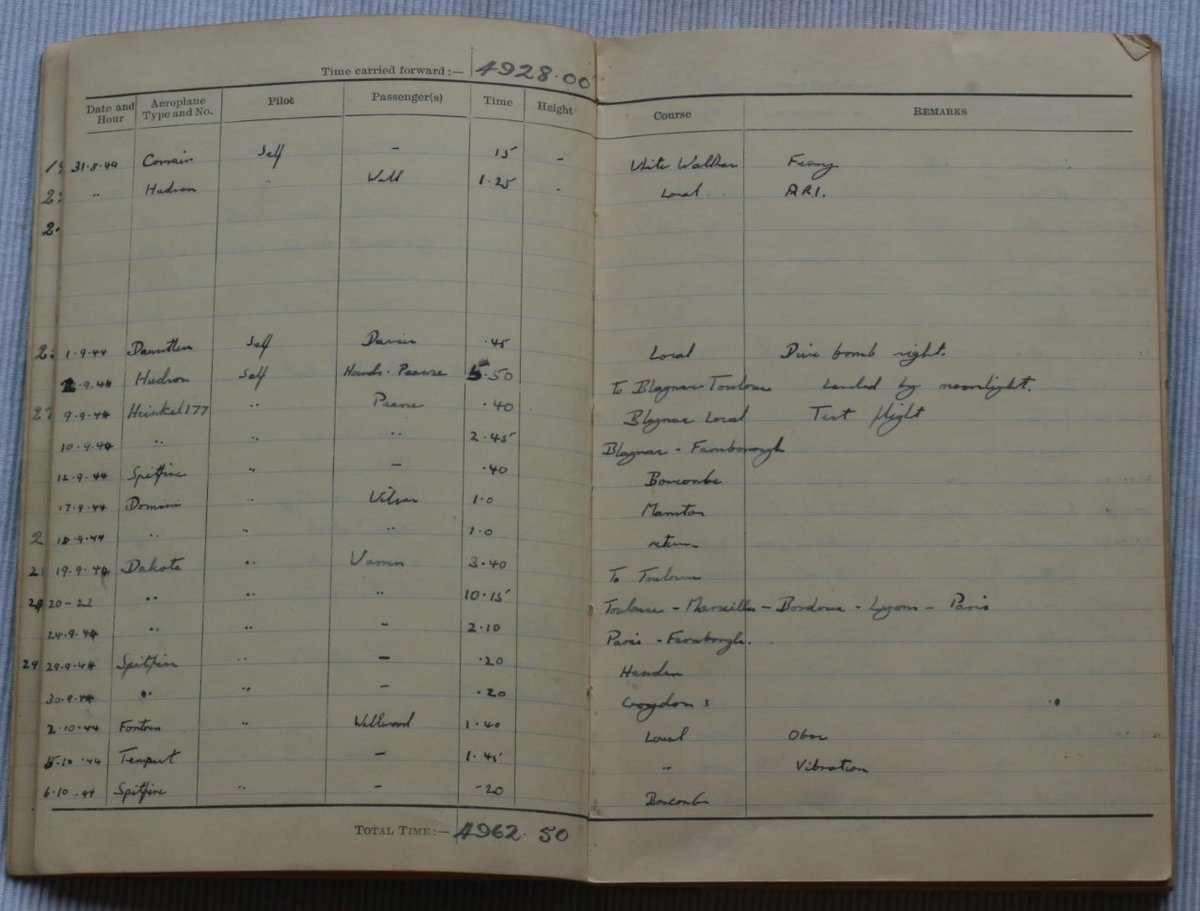 Time carried forward:— 4928.00
Date and Hour Aeroplane Type and No. Pilot Passenger(s) Time Height Course REMARKS
31·8·44 Self – 15 – White Waltham Ferry
" Hudson " 1·25 - Local A.R.I.
1·9·44 Dauntless Self ·45 Local Dive bomb sight.
9·44 Hudson Self Hands · Pearse 5·50 To Blagnac Toulouse Landed by moonlight.
9·9·44 Heinkel 177 " Pearse ·40 Blagnac Local Test flight
10·9·44 " " " 2·45 Blagnac - Farnborough
12·9·44 Spitfire " – ·40 Boscombe
17·9·44 Dominie " 1·0 Manston
18·9·44 " " " 1·0 return.
19·9·44 Dakota " 3·40 To Toulouse
20-23 " " " 10·15 Toulouse - Marseilles - Bordeaux - Lyons - Paris
24·9·44 " " " 2·10 Paris - Farnborough.
29·9·44 Spitfire " – ·20 Hendon
30·9·44 " " – ·20 Croydon
2·10·44 " Wellwood 1·40 Local
5·10·44 Tempest – 1·45 " Vibration
6·10·44 Spitfire " – ·20 Boscombe
TOTAL TIME:— 4962·50